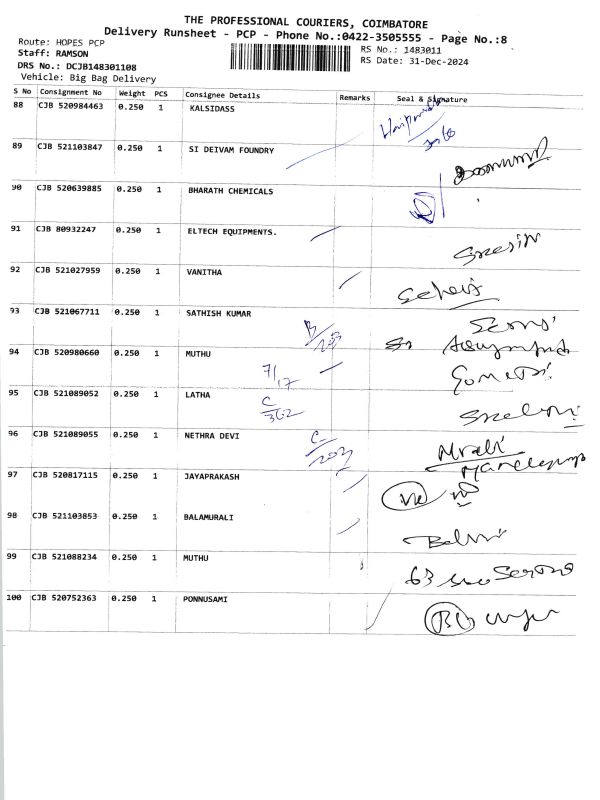 THE PROFESSIONAL COURIERS, COIMBATORE
Delivery Runsheet - PCP - Phone No.:0422-3505555 - Page No.:8
Route: HOPES PCP
RS No.: 1483011
Staff: RAMSON
RS Date: 31-Dec-2024
DRS No.: DCJB148301108
Vehicle: Big Bag Delivery
S No Consignment No Weight PCS Consignee Details Remarks Seal & Signature
88 CJB 520984463 0.250 1 KALSIDASS
89 CJB 521103847 0.250 1 SI DEIVAM FOUNDRY
90 CJB 520639885 0.250 1 BHARATH CHEMICALS
91 CJB 80932247 0.250 1 ELTECH EQUIPMENTS.
92 CJB 521027959 0.250 1 VANITHA
93 CJB 521067711 0.250 1 SATHISH KUMAR
B/203
94 CJB 520980660 0.250 1 MUTHU
7/17
95 CJB 521089052 0.250 1 LATHA
C/362
96 CJB 521089055 0.250 1 NETHRA DEVI
C/203
97 CJB 520817115 0.250 1 JAYAPRAKASH
98 CJB 521103853 0.250 1 BALAMURALI
99 CJB 521088234 0.250 1 MUTHU
100 CJB 520752363 0.250 1 PONNUSAMI